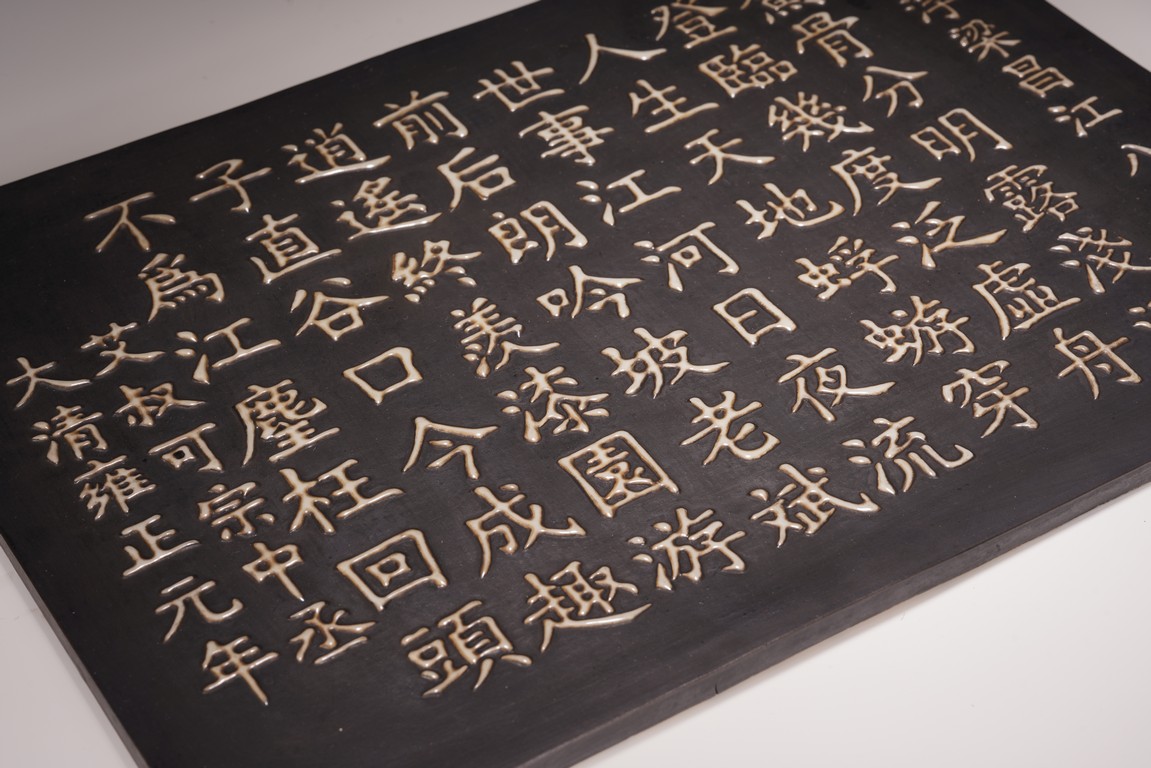 浮梁昌江八
骨分明露淺
登臨幾度泛虛舟
人生天地蜉蝣穿
世事江河日夜流
前后朗吟坡老斌
道遙終羨漆園游
子直谷口今成趣
不為江塵枉回頭
艾叔可宗中丞
大清雍正元年